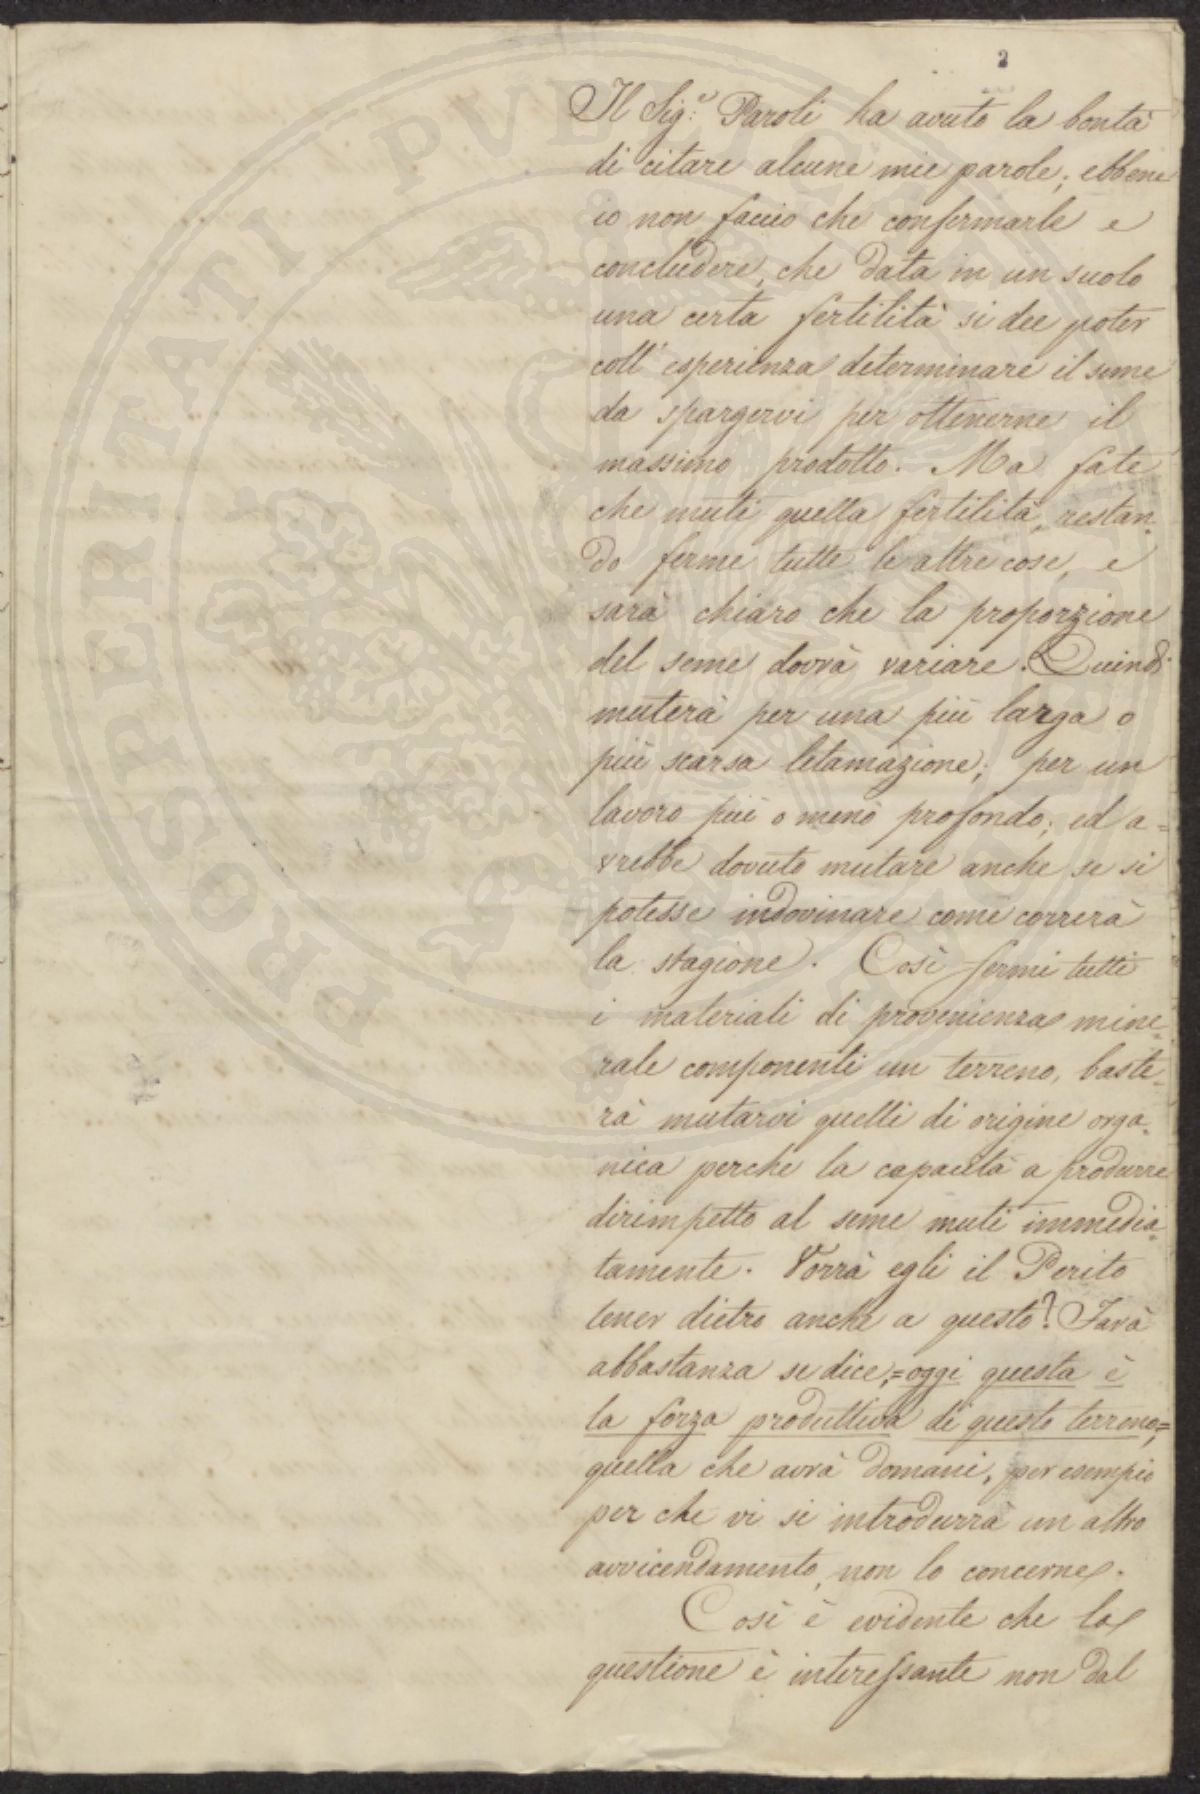 2
Il Sig.e Paroli ha avuto la bontà
di citare alcune mie parole; ebbene
io non faccio che confermarle e
concludere, che data in un suolo
una certa fertilità si dee poter
coll' esperienza determinare il seme
da spargervi per ottenerne il
massimo prodotto. Ma fate
che muti quella fertilità, restan-
do ferme tutte le altre cose, e
sarà chiaro che la proporzione
del seme dovrà variare. Quindi
muterà per una più larga o
più scarsa letamazione; per un
lavoro più o meno profondo; ed a=
vrebbe dovuto mutare anche se si
potesse indovinare come correrà
la stagione. Così fermi tutti
i materiali di provenienza mine-
rale componenti un terreno, baste-
rà mutarvi quelli di origine orga-
nica perche la capacità a produrre
dirimpetto al seme muti immedia-
tamente. Vorrà egli il Perito
tener dietro anche a questo? Farà
abbastanza se dice,=oggi questa è
la forza produttiva di questo terreno=,
quella che avrà domani, per esempio
per che vi si introdurrà un altro
avvicendamento, non lo concerne.
Così è evidente che la
questione è interessante non dal
PROSPERITATI PVBLICAE